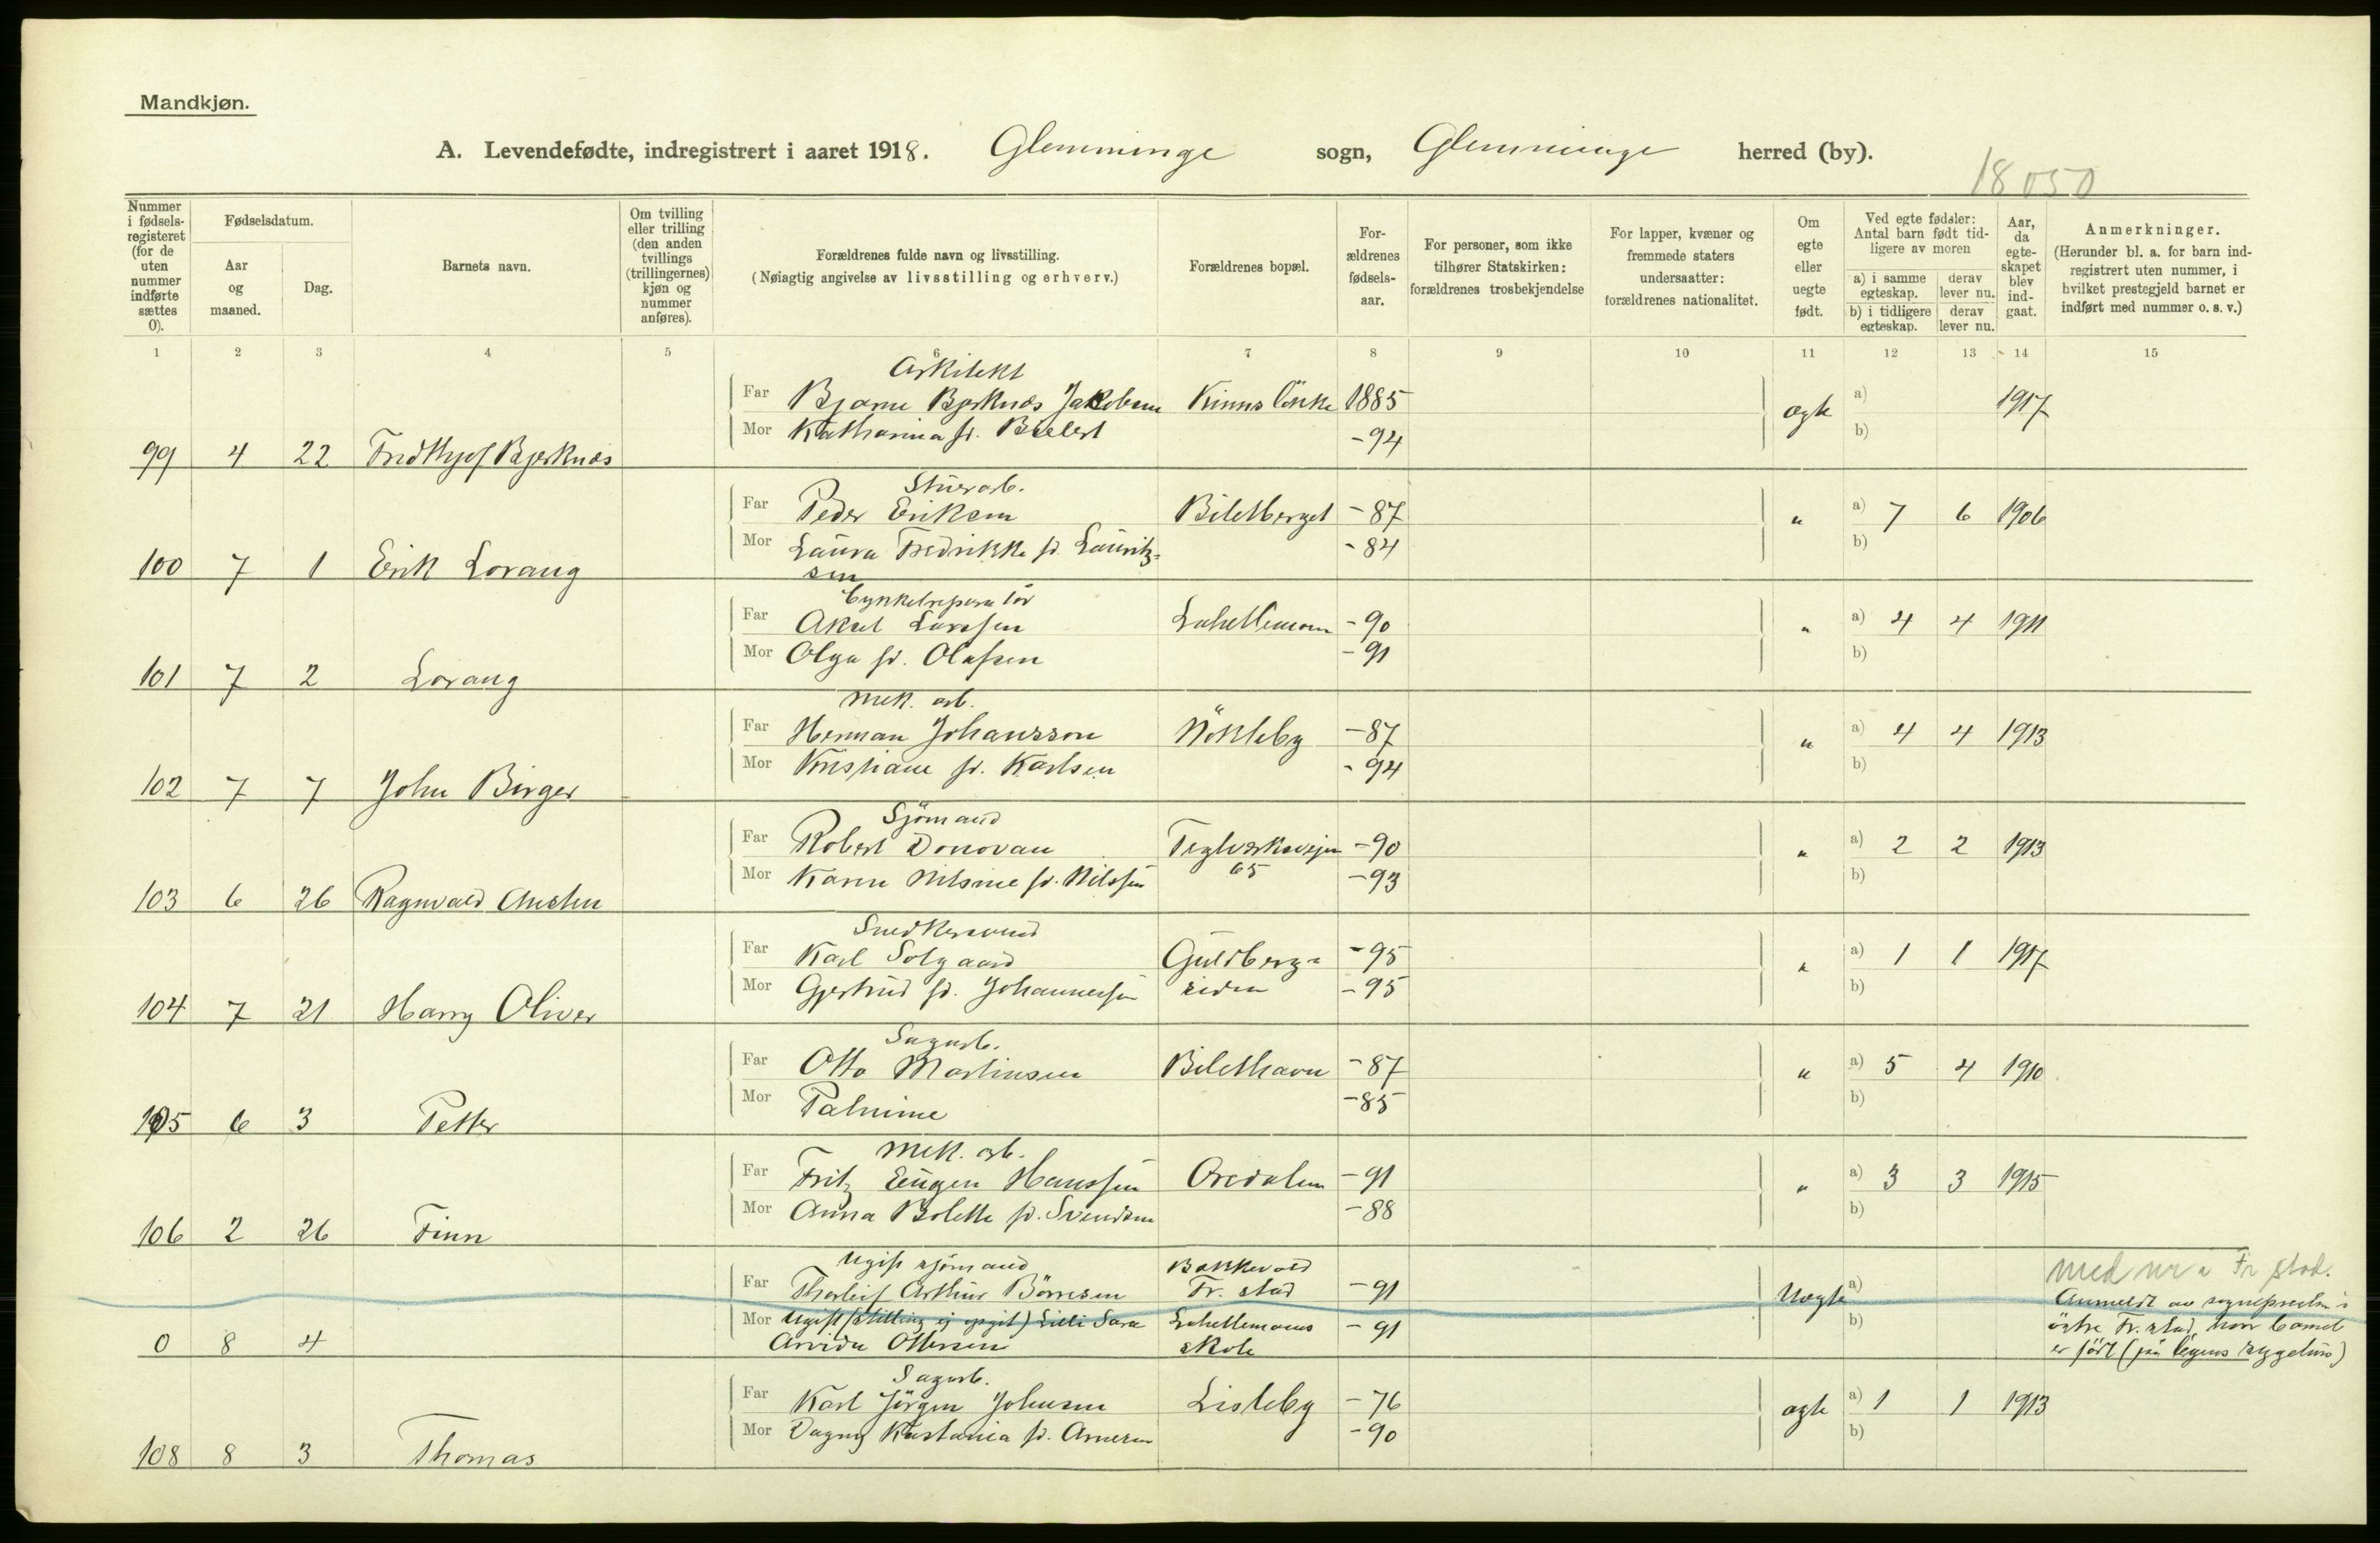 Mandkjøn.
A. Levendefødte, indregistrert i aaret 1918. Glemminge sogn, Glemminge herred (by).
18 050
Nummer i fødsels-registeret (for de uten nummer indførte sættes 0).
Fødselsdatum.
Aar og maaned.
Dag.
Barnets navn.
Om tvilling eller trilling (den anden tvillings (trillingernes) kjøn og nummer anføres).
Forældrenes fulde navn og livsstilling.
(Nøiagtig angivelse av livsstilling og erhverv.)
Forældrenes bopæl.
For-ældrenes fødsels-aar.
For personer, som ikke tilhører Statskirken: forældrenes trosbekjendelse
For lapper, kvæner og fremmede staters undersaatter: forældrenes nationalitet.
Om egte eller uegte født.
Ved egte fødsler: Antal barn født tid-ligere av moren
a) i samme egteskap.
derav lever nu.
b) i tidligere egteskap.
derav lever nu.
Aar, da egte-skapet blev ind-gaat.
Anmerkninger.
(Herunder bl. a. for barn ind-registrert uten nummer, i hvilket prestegjeld barnet er indført med nummer o. s. v.)
1 2 3 4 5 6 7 8 9 10 11 12 13 14 15
Arkitekt
Far Bjarne Bjerknes Jakobsen 1885 ægte a) 1917
Mor Katharina fd. -94 b)
99 4 22 Fridthjof Bjerknes
Stuerarb.
Far Peder Eriksen Biletberget -87 " a) 7 6 1906
Mor Laura Fredrikke fd. Lauritz-
sen -84 b)
100 7 1 Erik Lorang
Cykkelreparatör
Far Aksel Larssen Lahellemoen -90 " a) 4 4 1911
Mor Olga fd. Olafsen -91 b)
101 7 2 Lorang
Mek. arb.
Far Herman Johansson Nökleby -87 " a) 4 4 1913
Mor Kristiane fd. Karlsen -94 b)
102 7 7 John Birger
Sjömand
Far Robert Donovan Teglverksveien -90 " a) 2 2 1913
Mor Karen Nilsine fd. Nilssen 65 -93 b)
103 6 26 Ragnvald Austen
Snedkersvend
Far Karl Solgaard Guldberg- -95 " a) 1 1 1917
Mor Gjertrud fd. Johannessen siden -95 b)
104 7 21 Harry Oliver
Sagarb.
Far Otto Martinsen Bilethavn -87 " a) 5 4 1910
Mor Palmine -85 b)
105 6 3 Petter
Mek. arb.
Far Fritz Eugen Hanssen Oredalen -91 " a) 3 3 1915
Mor Anna Bolette fd. Svendsen -88 b)
106 2 26 Finn
Ugift sjömand Bakkevold med nr i Fr stad.
Far Thorleif Arthur Börresen Fr. stad -91 Uægte a) Anmeldt av sognepresten i
Mor Ugift (stilling ej opgit) Lilli Sara Lahellemoens -91 b) östre Fr. stad, hvor barnet
0 8 4 Arvida Ottersen skole er födt (paa byens sygehus)
Sagarb.
Far Karl Jörgen Johansen Lisleby -76 ægte a) 1 1 1913
Mor Dagny Kastania fd. Arnesen -90 b)
108 8 3 Thomas